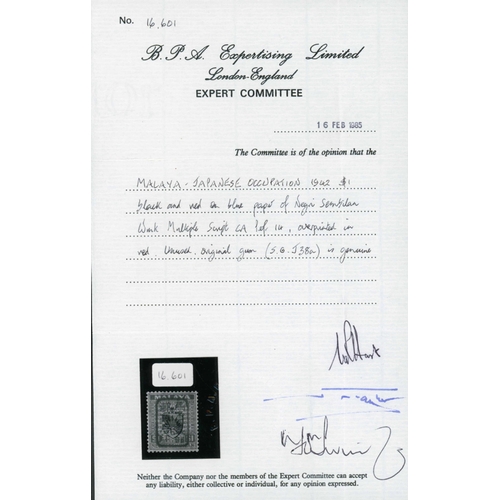 No. 16,601
B.P.A. Expertising Limited
London-England
EXPERT COMMITTEE
16 FEB 1985
The Committee is of the opinion that the
MALAYA - JAPANESE OCCUPATION 1942 $1
black and red on blue paper of Negri Sembilan
Wmk Multiple Script CA 1 of 14, overprinted in
red Unused, original gum (S.G. J38a) is genuine
16,601
MALAYA
Neither the Company nor the members of the Expert Committee can accept
any liability, either collective or individual, for any opinion expressed.